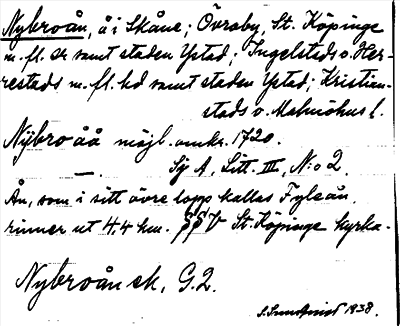 Nybroån, å i Skåne; Övraby, St. Köpinge
m. fl. sr samt staden Ystad; Ingelstads o. Her-
restads m. fl. hd samt staden Ystad; Kristian-
stads o. Malmöhus l.
Nÿbro åå möjl. omkr. 1720.
—. Sj A, Litt. III, N:o 2
Ån, som i sitt övre lopp kallas Fyleån,
rinner ut 4,4 km. V St. Köpinge kyrka.
Nybroån ek, G.2.
1938.